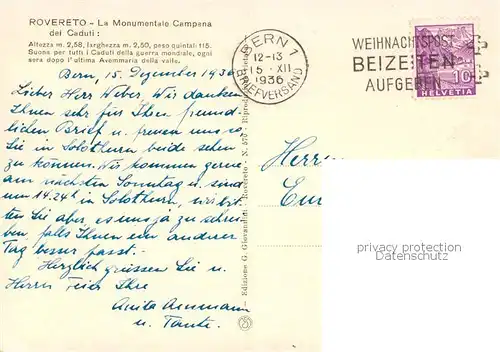 ROVERETO - La Monumentale Campana
dei Caduti:
Altezza m. 2,58, larghezza m. 2,50, peso quintali: 115.
Suona per tutti i Caduti della guerra mondiale, ogni
sera dopo l'ultima Avemmaria della valle.
Bern, 15. Dezember 1936
Lieber Herr Weber, Wir danken
Ihnen sehr für Ihren freund-
lichen Brief u. freuen uns
Sie in Solothurn beide sehen
zu können. Wir kommen gerne
am nächsten Sonntag u. sind
um 14.24h in Solothurn,
ten Sie aber es uns ja zu schrei-
ben falls Ihnen ein anderer
Tag besser passt.
Herzlich grüssen Sie u.
Herrn Feier Ihre
Anita Ammann
u. Tante.
Edizione G. Giovannini - Rovereto - N. 575 - Riprod.
BERN 1
12-13
15. XII
1936
BRIEFVERSAND
WEIHNACHTSPOST
BEIZEITEN
AUFGEBEN
10
HELVETIA
Herrn
privacy protection
watermark